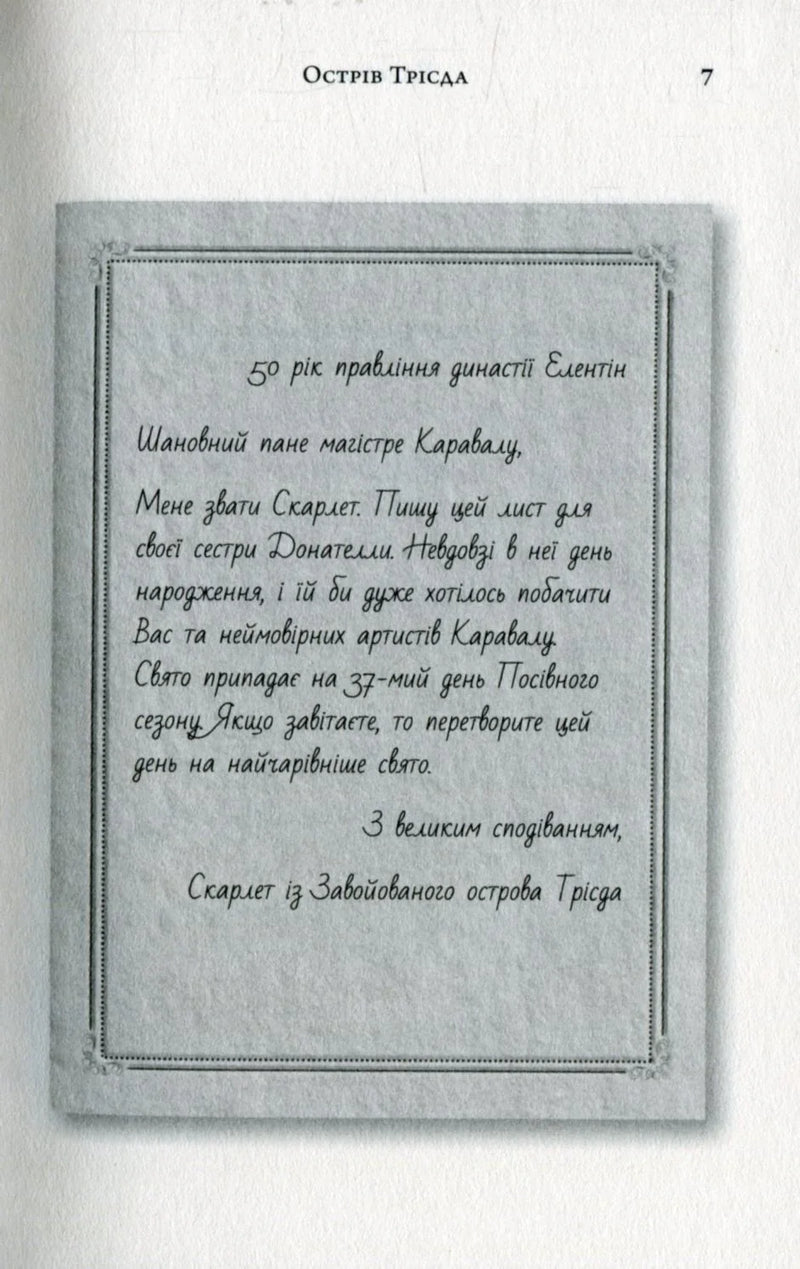 Острів Трісда 7
50 рік правління династії Елентін
Шановний пане магістре Каравалу,
Мене звати Скарлет. Пишу цей лист для
своєї сестри Донателли. Невдовзі в неї день
народження, і їй би дуже хотілось побачити
Вас та неймовірних артистів Каравалу.
Свято припадає на 37-мий день Посівного
сезону. Якщо завітаєте, то перетворите цей
день на найчарівніше свято.
З великим сподіванням,
Скарлет із Завойованого острова Трісда